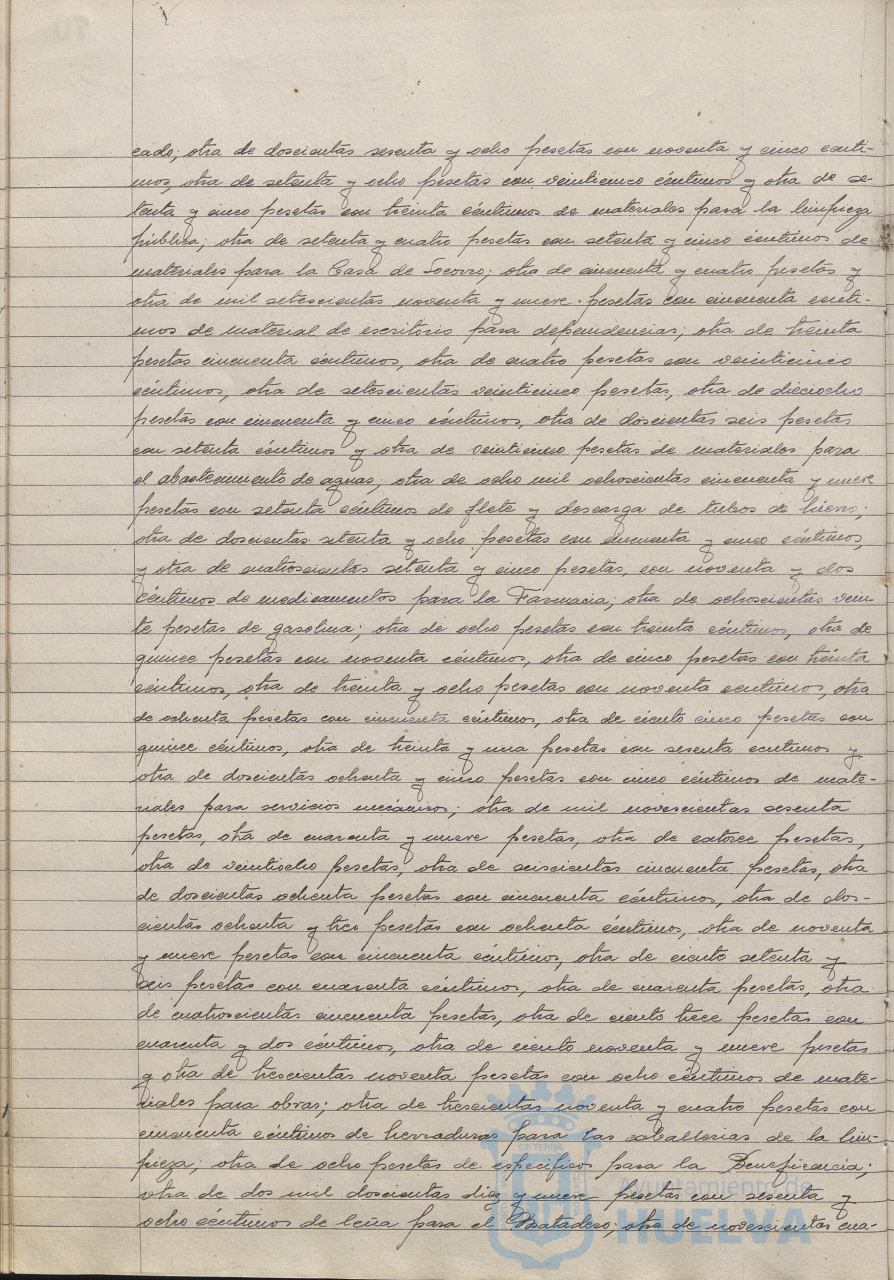 cado; otra de doscientas sesenta y ocho pesetas con noventa y cinco cénti-
mos, otra de setenta y ocho pesetas con veinticinco céntimos y otra de se-
tenta y cinco pesetas con treinta céntimos de materiales para la limpieza
pública; otra de setenta y cuatro pesetas con setenta y cinco céntimos de
materiales para la Casa de Socorro; otra de cincuenta y cuatro pesetas y
otra de mil setescientas noventa y nueve pesetas con cincuenta cénti-
mos de material de escritorio para dependencias; otra de treinta
pesetas cincuenta céntimos, otra de cuatro pesetas con veinticinco
céntimos, otra de setescientas veinticinco pesetas, otra de dieciocho
pesetas con cincuenta y cinco céntimos, otra de doscientas seis pesetas
con setenta céntimos y otra de veinticinco pesetas de materiales para
el abastecimiento de aguas; otra de ocho mil ochoscientas cincuenta y nueve
pesetas con setenta céntimos de flete y descarga de tubos de hierro;
otra de doscientas setenta y ocho pesetas con cincuenta y cinco céntimos,
y otra de cuatroscientas setenta y cinco pesetas, con noventa y dos
céntimos de medicamentos para la Farmacia; otra de ochoscientas vein-
te pesetas de gasolina; otra de ocho pesetas con treinta céntimos, otra de
quince pesetas con noventa céntimos, otra de cinco pesetas con treinta
céntimos, otra de treinta y ocho pesetas con noventa céntimos, otra
de ochenta pesetas con cincuenta céntimos, otra de ciento cinco pesetas con
quince céntimos, otra de treinta y una pesetas con sesenta céntimos y
otra de doscientas ochenta y cinco pesetas con cinco céntimos de mate-
riales para servicios mecánicos; otra de mil novescientas sesenta
pesetas, otra de cuarenta y nueve pesetas, otra de catorce pesetas,
otra de veintiocho pesetas, otra de seiscientas cincuenta pesetas, otra
de doscientas ochenta pesetas con cincuenta céntimos, otra de dos-
cientas ochenta y tres pesetas con ochenta céntimos, otra de noventa
y nueve pesetas con cincuenta céntimos, otra de ciento setenta y
seis pesetas con cuarenta céntimos, otra de cuarenta pesetas, otra
de cuatroscientas cincuenta pesetas, otra de ciento trece pesetas con
cuarenta y dos céntimos, otra de ciento noventa y nueve pesetas
y otra de trescientas noventa pesetas con ocho céntimos de mate-
riales para obras; otra de trescientas noventa y cuatro pesetas con
cincuenta céntimos de herraduras para las caballerias de la lim-
pieza; otra de ocho pesetas de específicos para la Beneficencia;
otra de dos mil doscientas diez y nueve pesetas con sesenta y
ocho céntimos de leña para el Matadero; otra de novescientas cua-
Ayuntamiento de
HUELVA